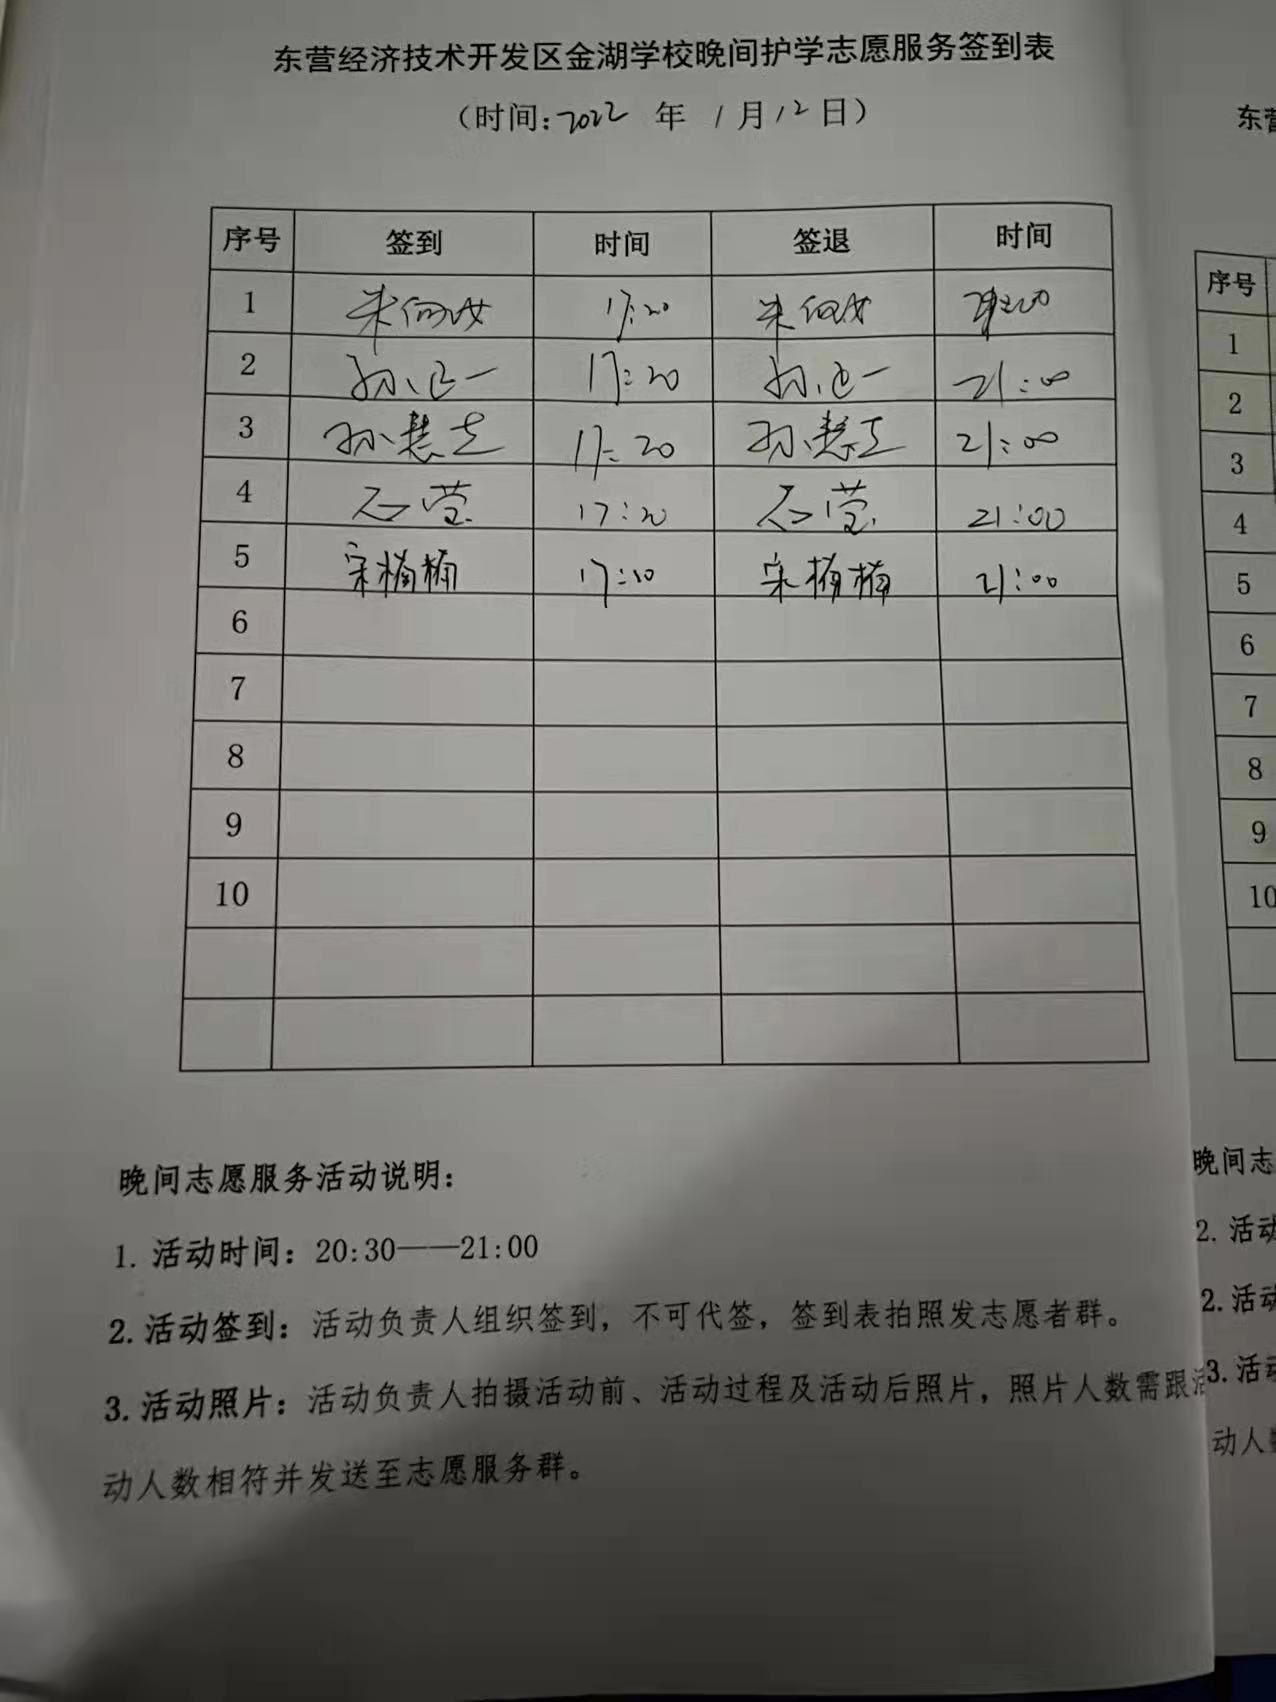 东营经济技术开发区金湖学校晚间护学志愿服务签到表
（时间：2022 年 1月12日）
序号 签到 时间 签退 时间
1 17:20
2 孙正一 17:20 孙正一 21:00
3 孙慧芝 17:20 孙慧芝 21:00
4 石莹 17:20 石莹 21:00
5 宋楠楠 17:20 宋楠楠 21:00
6
7
8
9
10
晚间志愿服务活动说明：
1. 活动时间：20:30——21:00
2. 活动签到：活动负责人组织签到，不可代签，签到表拍照发志愿者群。
3. 活动照片：活动负责人拍摄活动前、活动过程及活动后照片，照片人数需跟活
动人数相符并发送至志愿服务群。
东营
序号
1
2
3
4
5
6
7
8
9
10
晚间志
2. 活动
2. 活动
3. 活动
动人数